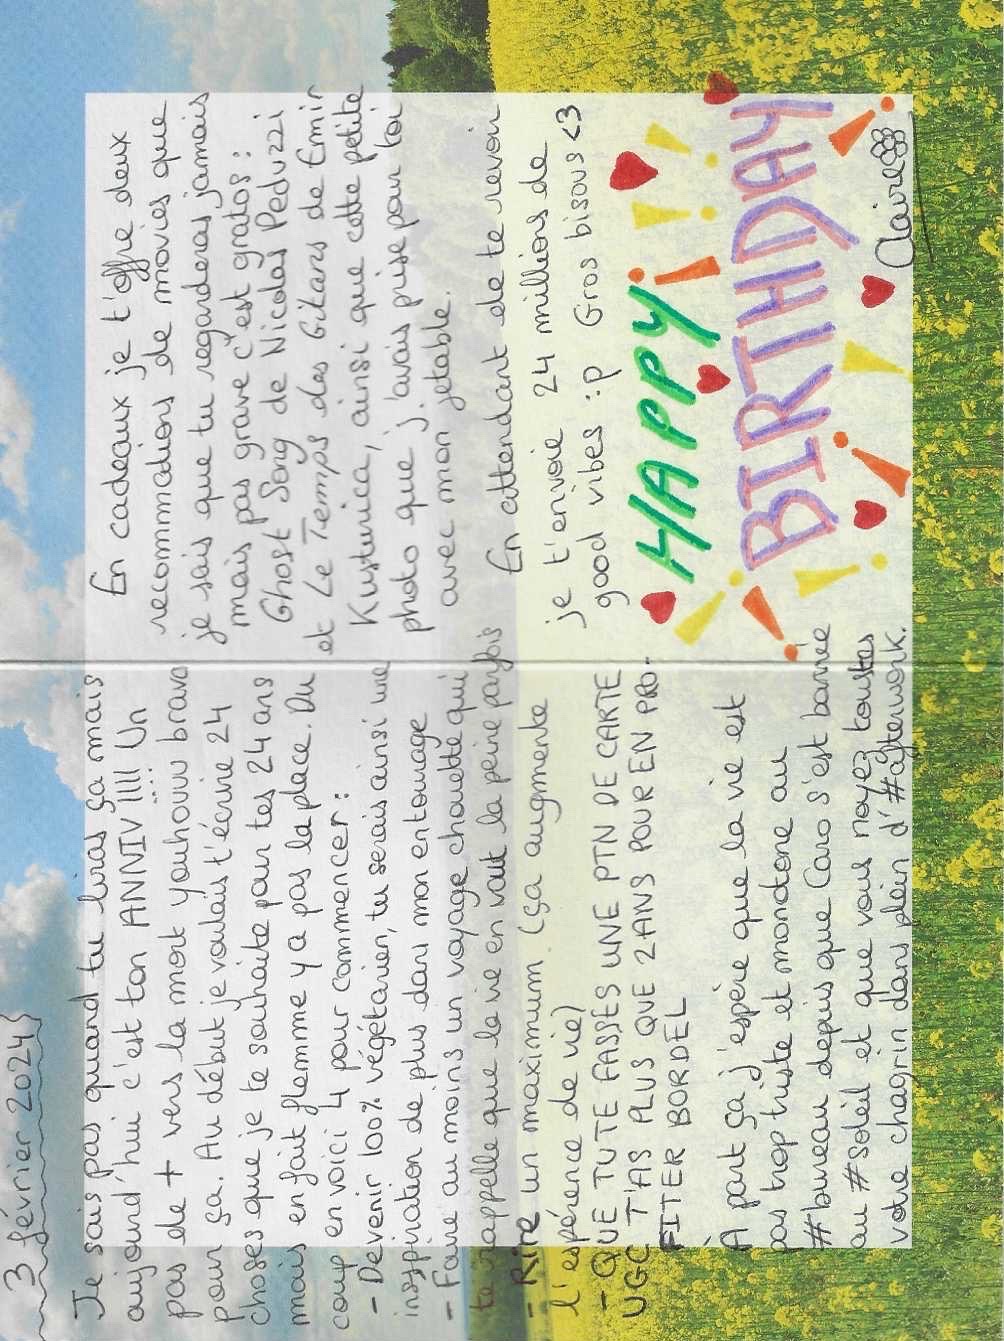 3 février 2024
Je sais pas quand tu liras ça mais
aujourd'hui c'est ton ANNIV !!!! Un
pas de + vers la mort youhouuu bravo
pour ça. Au début je voulais t'écrire 24
choses que je te souhaite pour tes 24 ans
mais en fait flemme y a pas la place. Du
coup en voici 4 pour commencer :
- Devenir 100% végétarien, tu serais ainsi une
inspiration de plus dans mon entourage
- Faire au moins un voyage chouette qui
te rappelle que la vie en vaut la peine parfois
- Rire un maximum. (ça augmente
l'espérence de vie)
- QUE TU TE FASSES UNE PTN DE CARTE
UGC T'AS PLUS QUE 2 ANS POUR EN PRO-
FITER BORDEL
À part ça j'espère que la vie est
pas trop triste et monotone au
#bureau depuis que Caro s'est barrée
au #soleil et que vous noyez toustes
votre chagrin dans plein d'#afterwork.
En cadeaux je t'offre deux
recommations de movies que
je sais que tu regarderas jamais
mais pas grave c'est gratos :
Ghost Song de Nicolas Peduzzi
et Le Temps des Gitans de Emir
Kusturica, ainsi que cette petite
photo que j'avais prise par toi
avec mon jetable.
En attendant de te revoir
je t'envoie 24 millions de
good vibes :p Gros bisous <3
HAPPY
BIRTHDAY
Claire